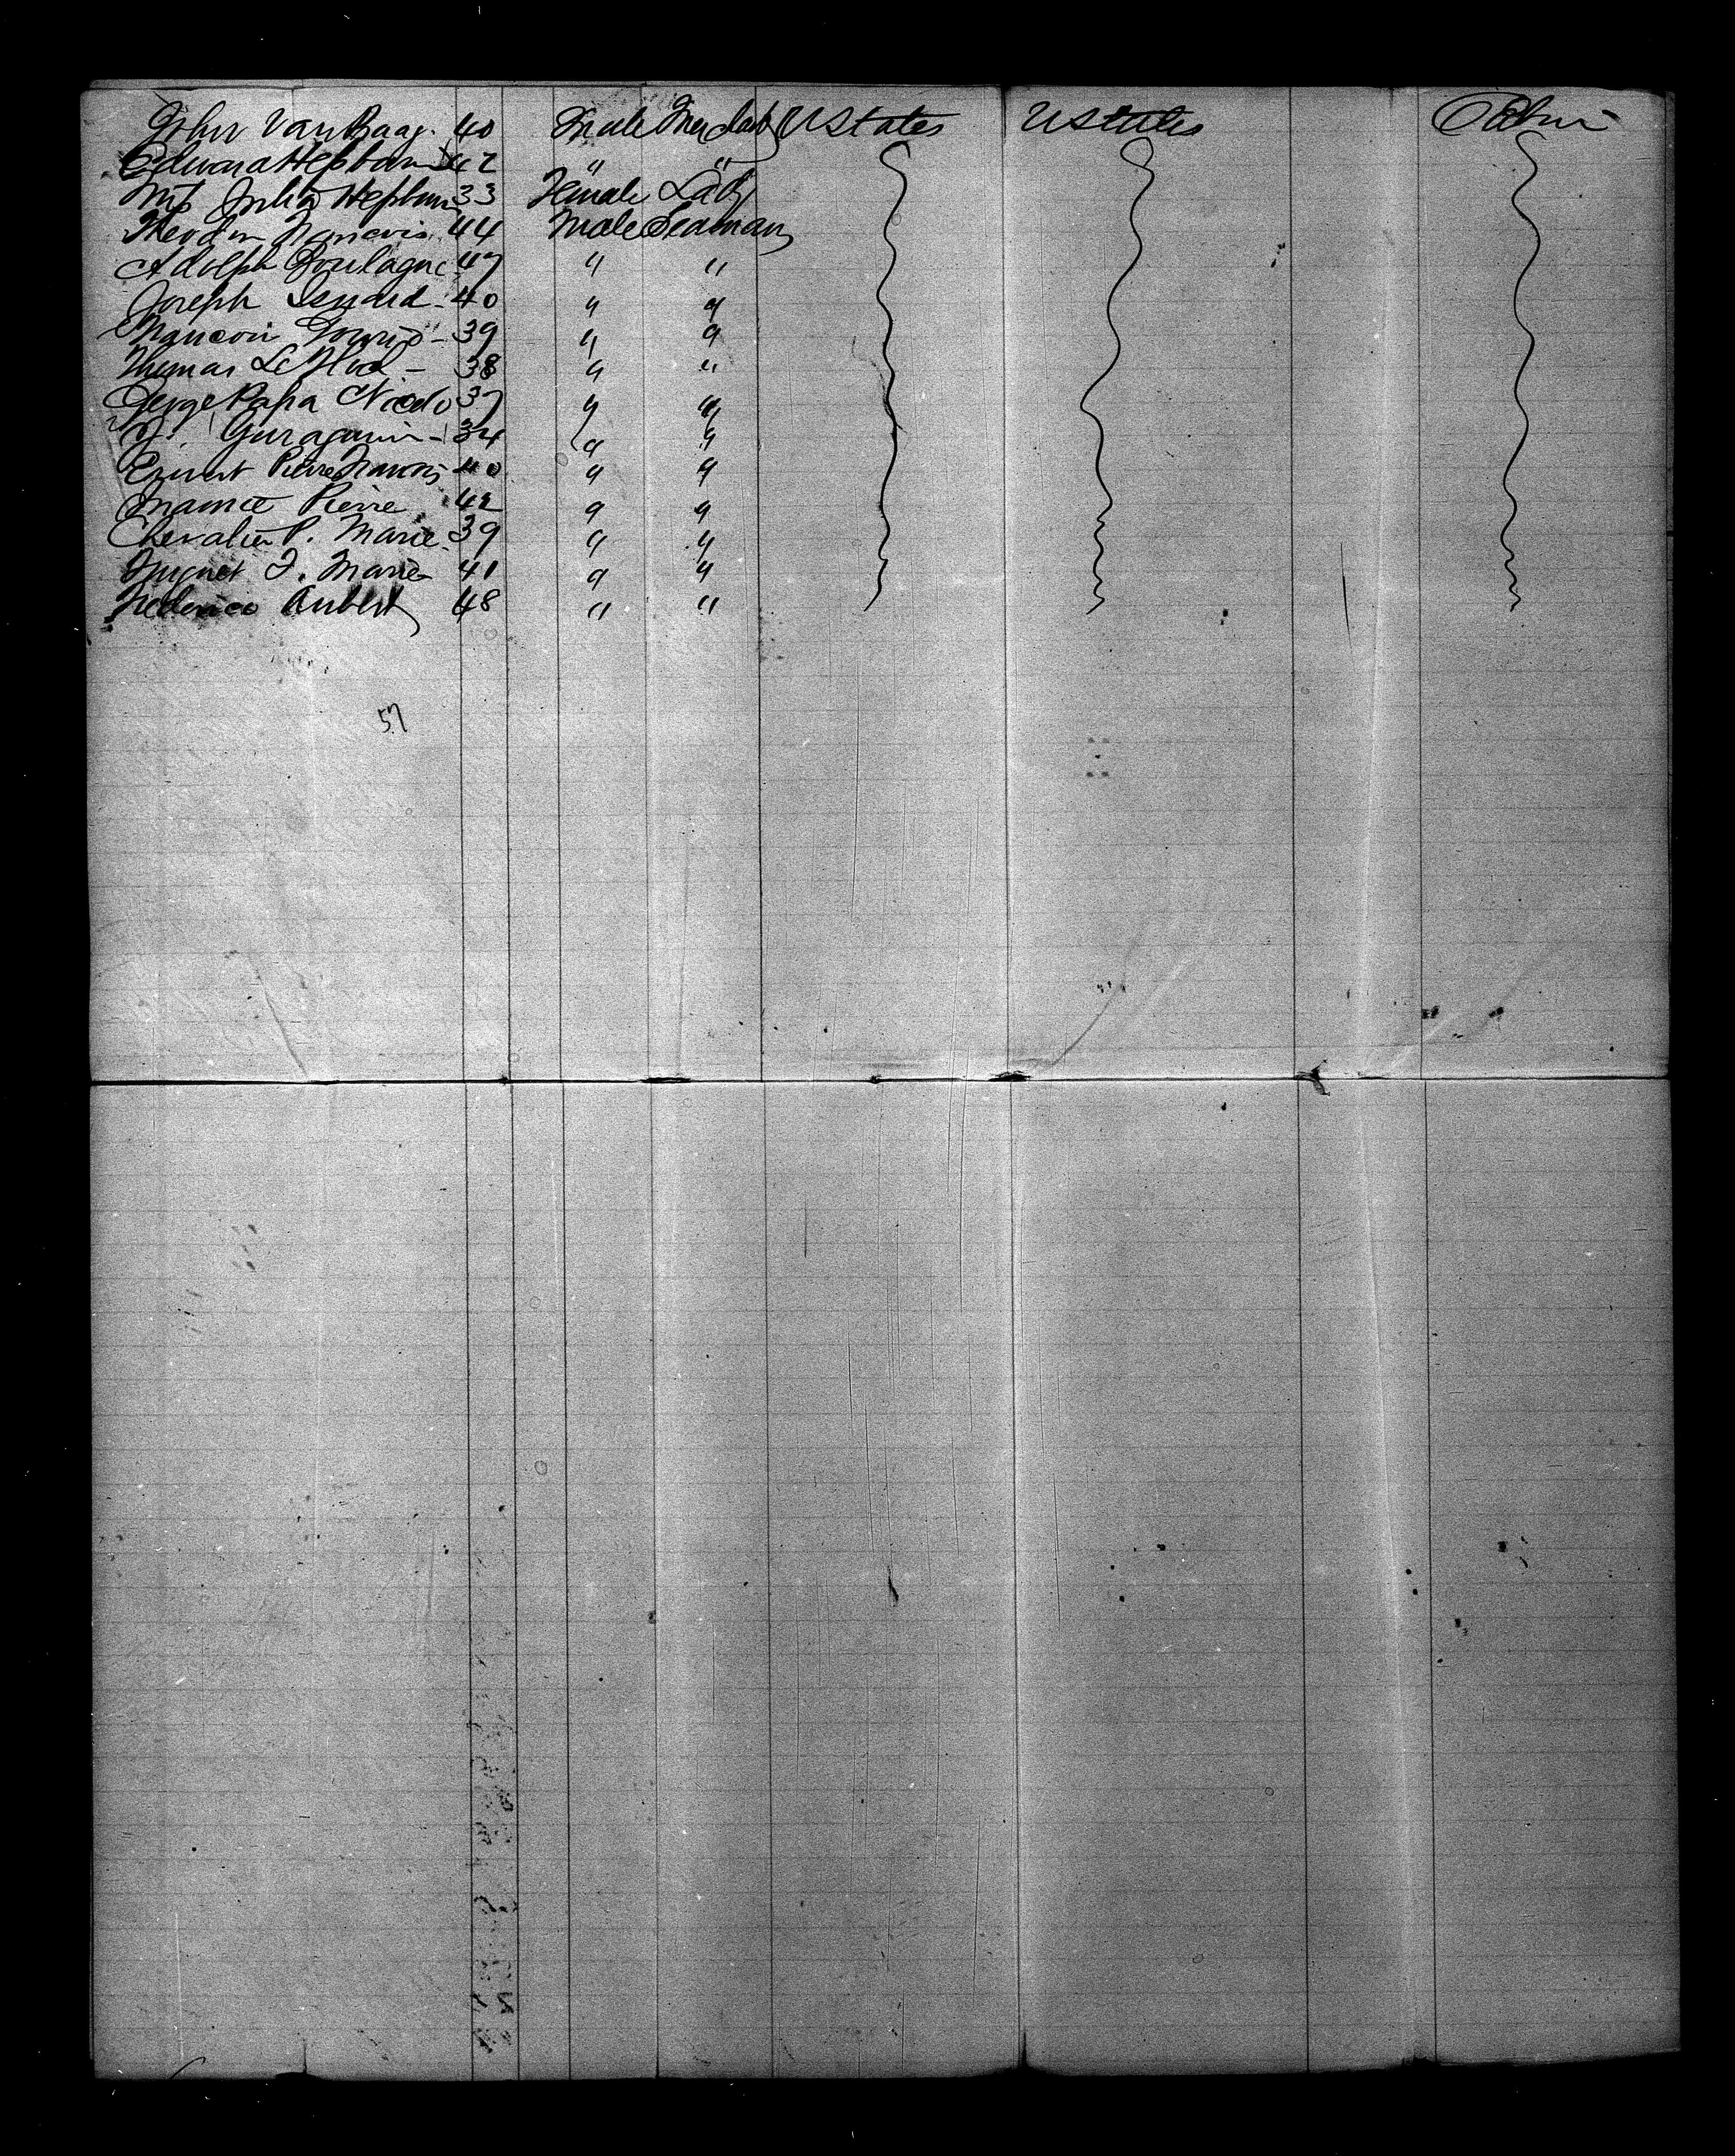 John Van Baag. 40 Male Merchant U States U States Cabin
Edward Hepburn 42 " "
Mrs Julia Hepburn 33 Female Lady
Theodore Francois. 44 Male Seaman
Adolph Boulagne 47 " "
Joseph Isnard - 40 " "
Francois - 39 " "
Thomas - 38 " "
George Papa Nicolo 37 " "
34 " "
Ernest Pierre Francois 40 " "
Maurice Pierre 42 " "
Chevalier P. Marie 39 " "
Huguet F. Marie 41 " "
Frederico Aubert 48 " "
57